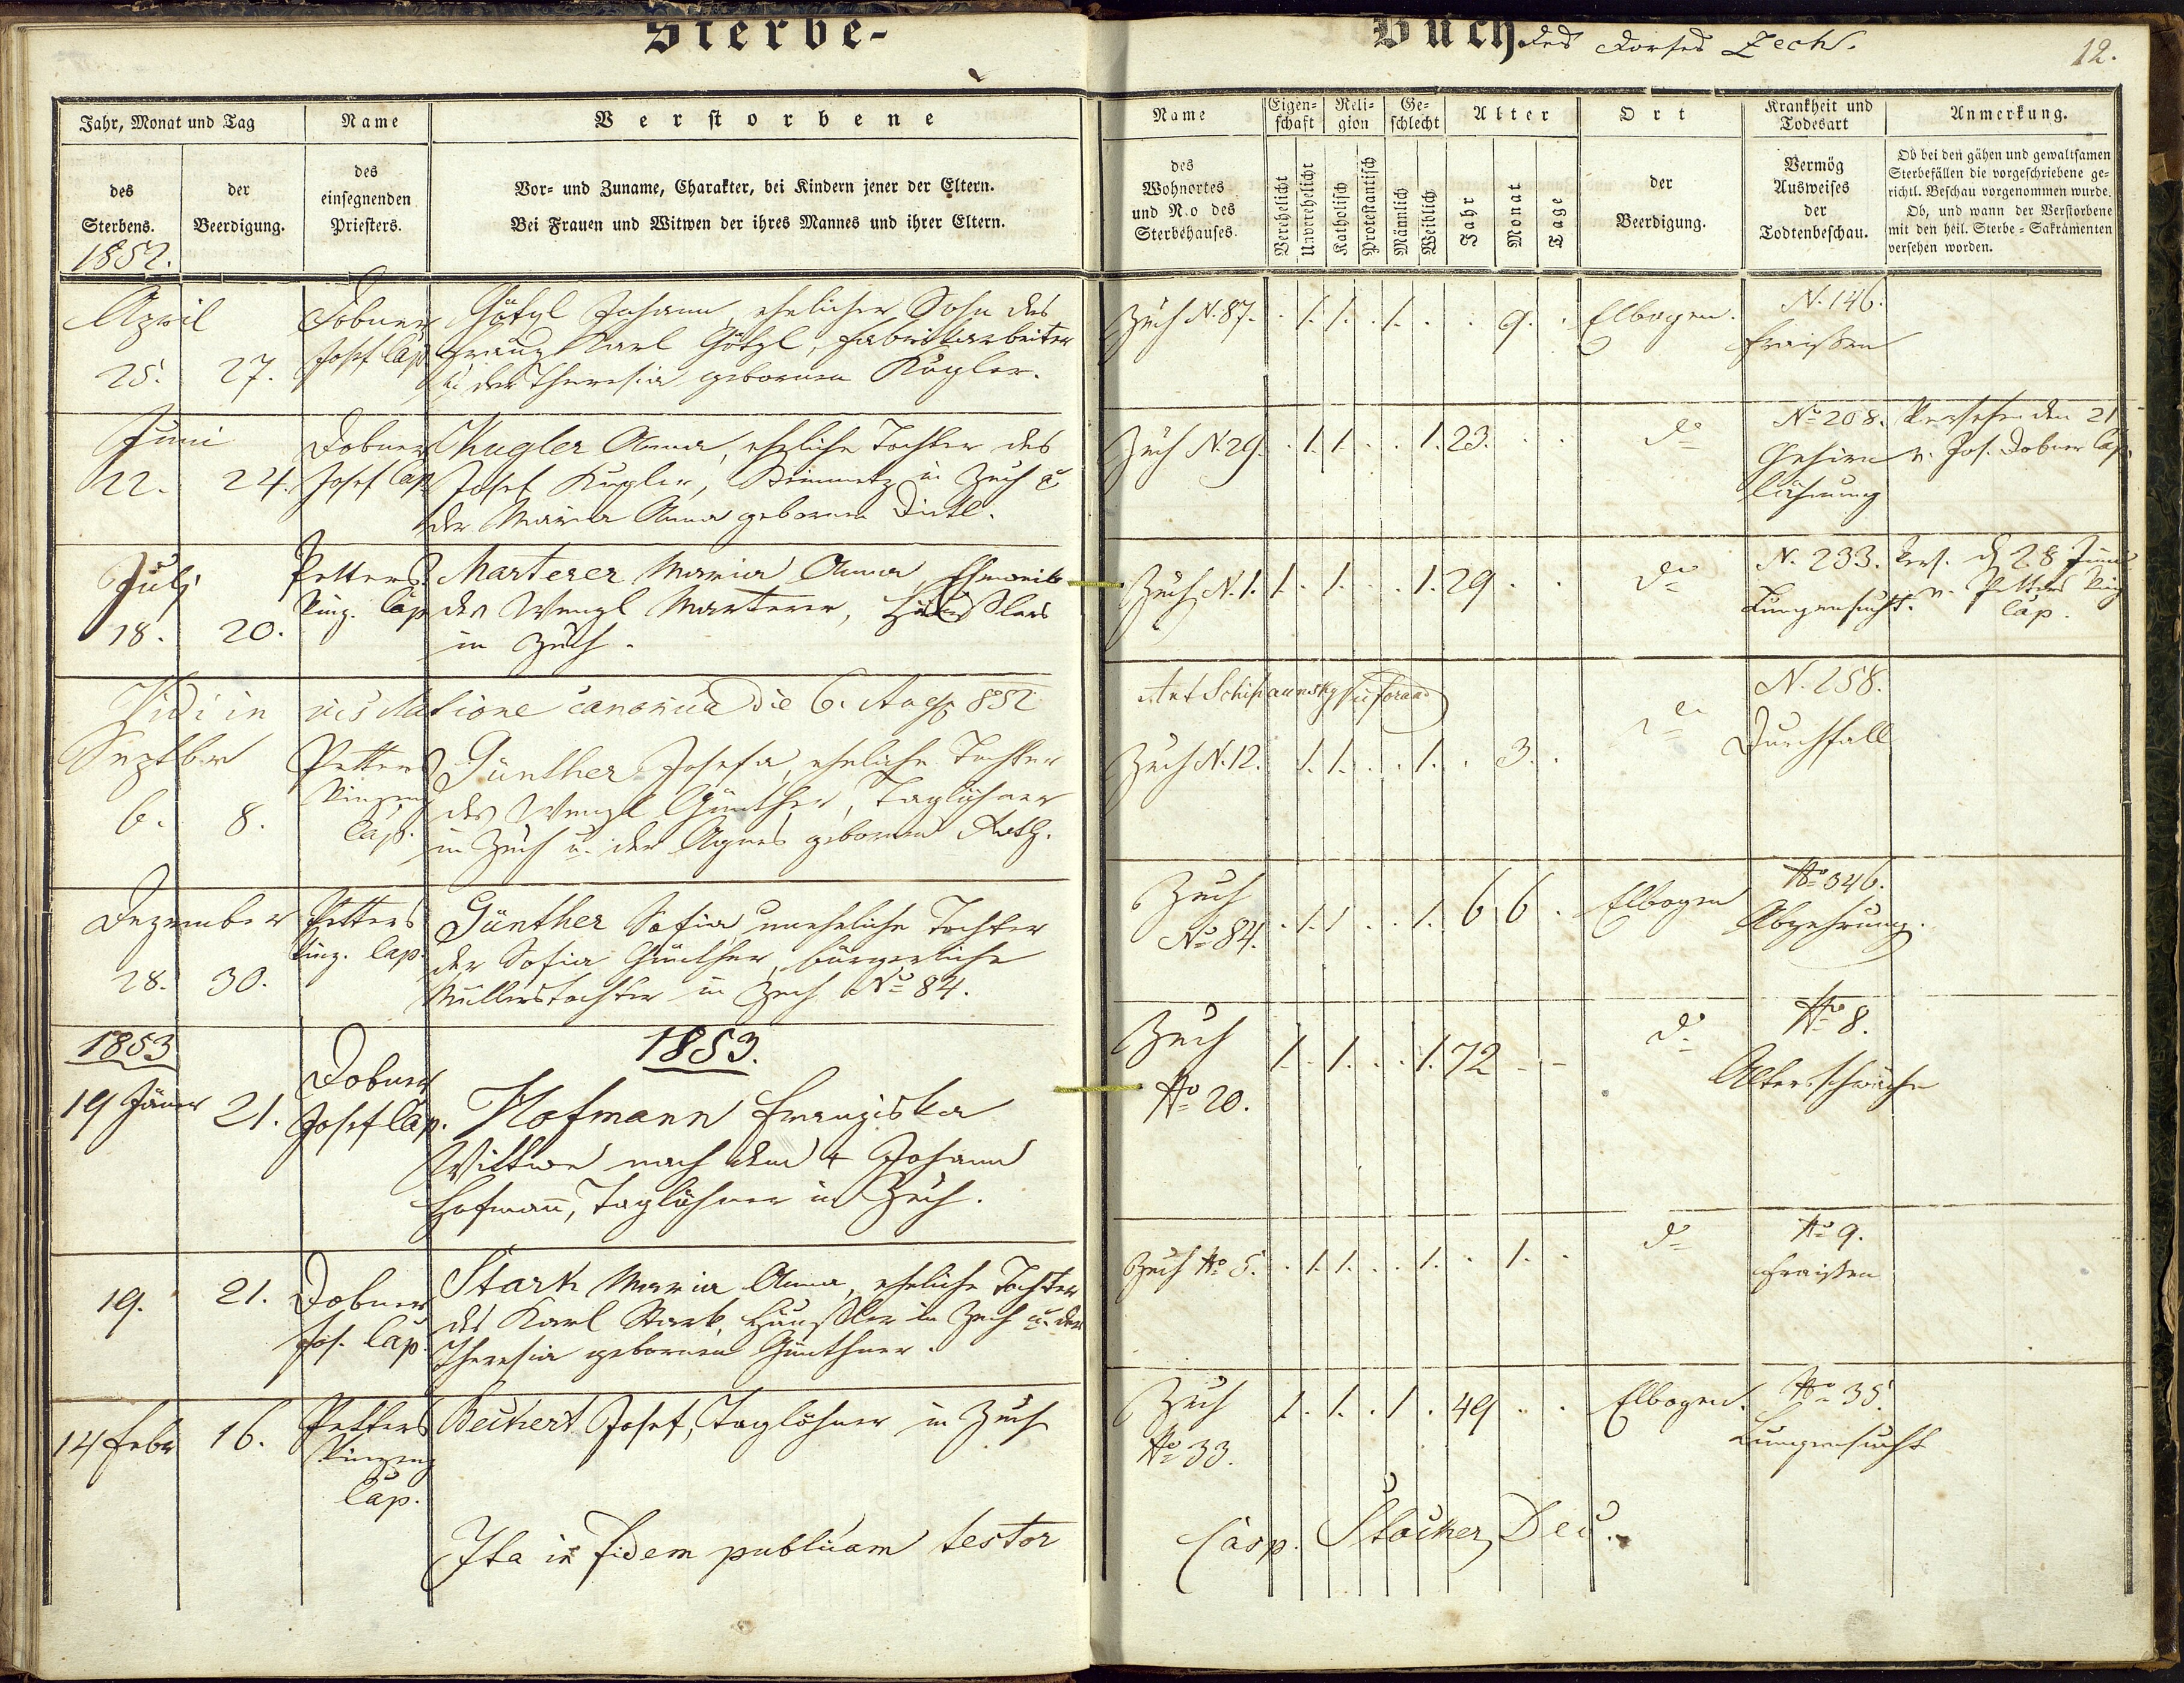 Sterbe-
Buch des Dorfes Zech.
12.
Jahr, Monat und Tag
des Sterbens.
der Beerdigung.
Name
des
einsegnenden
Priesters.
Verstorbene
Vor- und Zuname, Charakter, bei Kindern jener der Eltern.
Bei Frauen und Witwen der ihres Mannes und ihrer Eltern.
Name
des
Wohnortes
und N.o des
Sterbehauses.
Eigen-
schaft
Verehelicht
Unverehelicht
Reli-
gion
Katholisch
Protestantisch
Ge-
schlecht
Männlich
Weiblich
Alter
Jahr
Monat
Tage
Ort
der
Beerdigung.
Krankheit und
Todesart
Vermög
Ausweises
der
Todtenbeschau.
Anmerkung.
Ob bei den gähen und gewaltsamen
Sterbefällen die vorgeschriebene ge-
richtl. Beschau vorgenommen wurde.
Ob, und wann der Verstorbene
mit den heil. Sterbe-Sakramenten
versehen worden.
1852.
April
25. 27.
Dobner
Josef Cap
Götzl Johann, ehelicher Sohn des
Franz Karl Götzl, Fabrikarbeiter
u. der Theresia gebornen Kugler.
Zech N. 87. . 1. 1. . 1. . . 9. . Elbogen.
N. 146.
Fraissen
Juni
22. 24.
Dobner
Josef Cap
Kugler Anna, eheliche Tochter des
Josef Kugler, Steinmetz in Zech u
der Maria Anna gebornen Dietl.
Zech N. 29. . 1. 1. . . 1. 23. . . do
No 208.
Gehirn
lähmung
Versehen den 21
v. Jos. Dobner Cap.
Julj
18. 20.
Petters
Vinz. Cap
Marterer Maria Anna, Eheweib
des Wenzl Marterer, Häußlers
in Zech.
Zech N. 1. 1. . 1. . . 1. 29 . . do
N. 233.
Lungensucht.
Vers. d 28 Juni
v. Petters Vinz
Cap.
Vidi in visitatione canonica die 6. Aug 852
Ant Schih
Septbr
6. 8.
Petters
Vinzenz
Cap.
Günther Josefa, eheliche Tochter
des Wenzl Günther, Taglöhner
in Zech u. der Agnes gebornen
Zech N. 12. . 1. 1. . . 1. . 3. . do
N. 258.
Durchfall
Dezember
28. 30.
Petters
Vinz. Cap.
Günther Sofia, uneheliche Tochter
der Sofia Günther, bürgerliche
Müllerstochter in Zech No 84.
Zech
No 84. . 1. 1. . . 1. 6 6 . Elbogen
No 346.
Abzehrung.
1853
1853.
19 Jäner 21.
Dobner
Josef Cap.
Hofmann Franziska
Wittwe nach dem † Johann
Hofmann, Taglöhner in Zech.
Zech
No 20. 1. . 1. . . 1. 72 - - do
No 8.
Altersschwäche
19. 21.
Dobner
Jos. Cap.
Stark Maria Anna, eheliche Tochter
des Karl Stark, Häußler in Zech u. der
Theresia gebornen Günthner.
Zech No 5. . 1. 1. . . 1. . 1. . do
No 9.
Fraissen
14 Febr 16.
Petters
Vinzenz
Cap.
Beichert Josef, Taglöhner in Zech
Zech
No 33. 1. . 1. . 1 . 49 . . Elbogen.
No 35.
Lungensucht
Ita in fidem publicam testor
Casp. Stöcker, Dec.